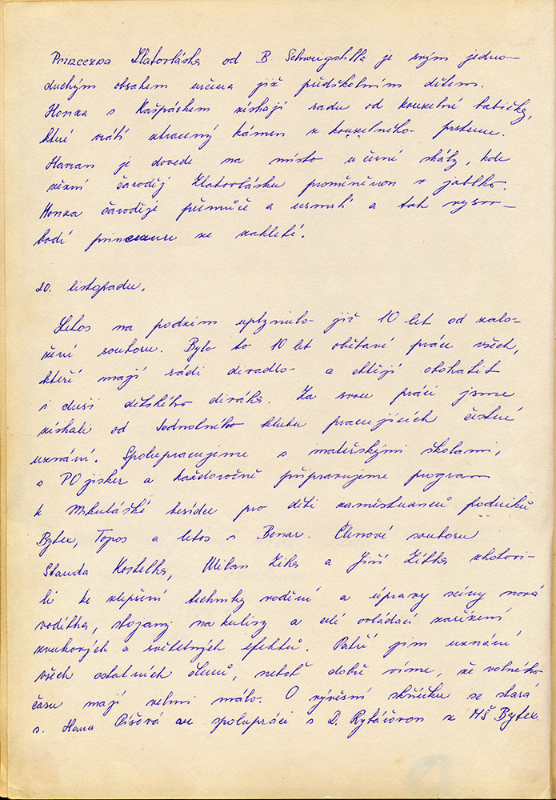 Princezna Zlatovláska od B. Schweigstilla je svým jedno-
duchým obsahem určena již předškolním dětem.
Honza s Kašpárkem získají radu od kouzelné babičky,
které vrátí ztracený kámen z kouzelného prstenu.
Havran je dovede na místo u černé skály, kde
vězní čaroděj Zlatovlásku proměněnou v jablko.
Honza čaroděje přemůže a usmrtí a tak vysvo-
bodí princeznu ze zakletí.
20. listopadu.
Letos na podzim uplynulo již 10 let od zalo-
žení souboru. Bylo to 10 let obětavé práce všech,
kteří mají rádi divadlo a chtějí obohatit
i duši dětského diváka. Za svou práci jsme
získali od Jednotného klubu pracujících čestné
uznání. Spolupracujeme s mateřskými školami,
s PO jisker a každoročně připravujeme program
k Mikulášské besídce pro děti zaměstnanců podniků
Bytex, Topos a letos i Benar. Členové souboru
Standa Kostelka, Milan Zika a Jiří Zítka zhotovi-
li ke zlepšení techniky vodění a úpravy scény nová
vodítka, stojany na kulisy a celé ovládací zařízení
zvukových a světelných efektů. Patří jim uznání
všech ostatních členů, neboť dobře víme, že volného
času mají velmi málo. O vývěsní skříňku se stará
s. Hana Číšová ve spolupráci s D. Rytířovou z MŠ Bytex.